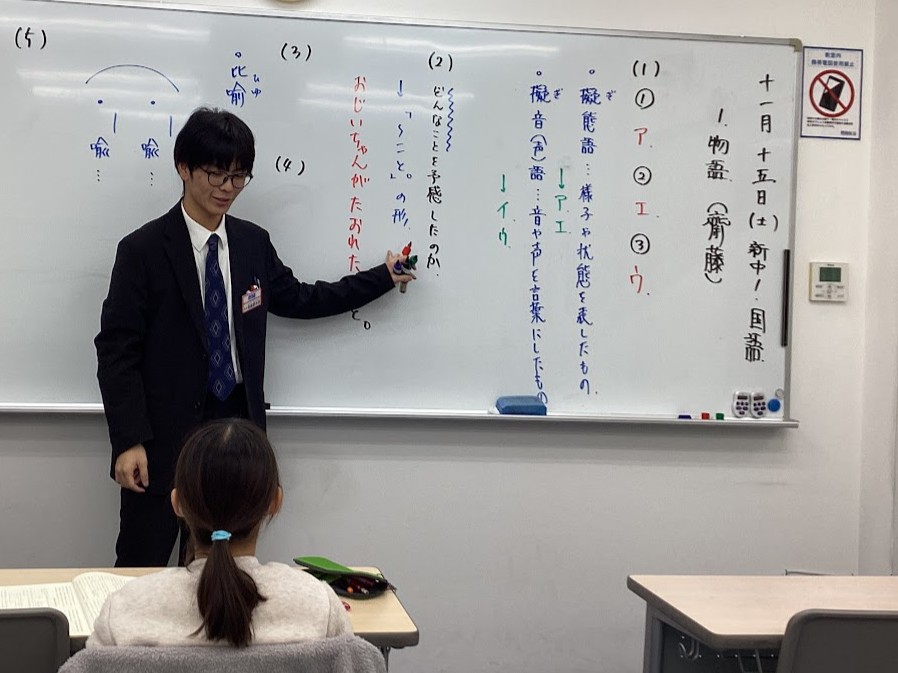 十一月 十五日(土) 新中1. 国語.
1. 物語. (齊藤)
(1)
① ア. ② エ. ③ ウ.
。擬態語…様子や状態を表したもの.
ぎ
↓ア.エ
。擬音(声)語…音や声を言葉にしたもの
ぎ
↓イ.ウ
(2)
どんなことを予感したのか.
↓「~こと。」の形.
おじいちゃんがたおれた
と。
(3)
(4)
。比喩
ひゆ
喩…
喩…
(5)
教室内
携帯電話使用禁止